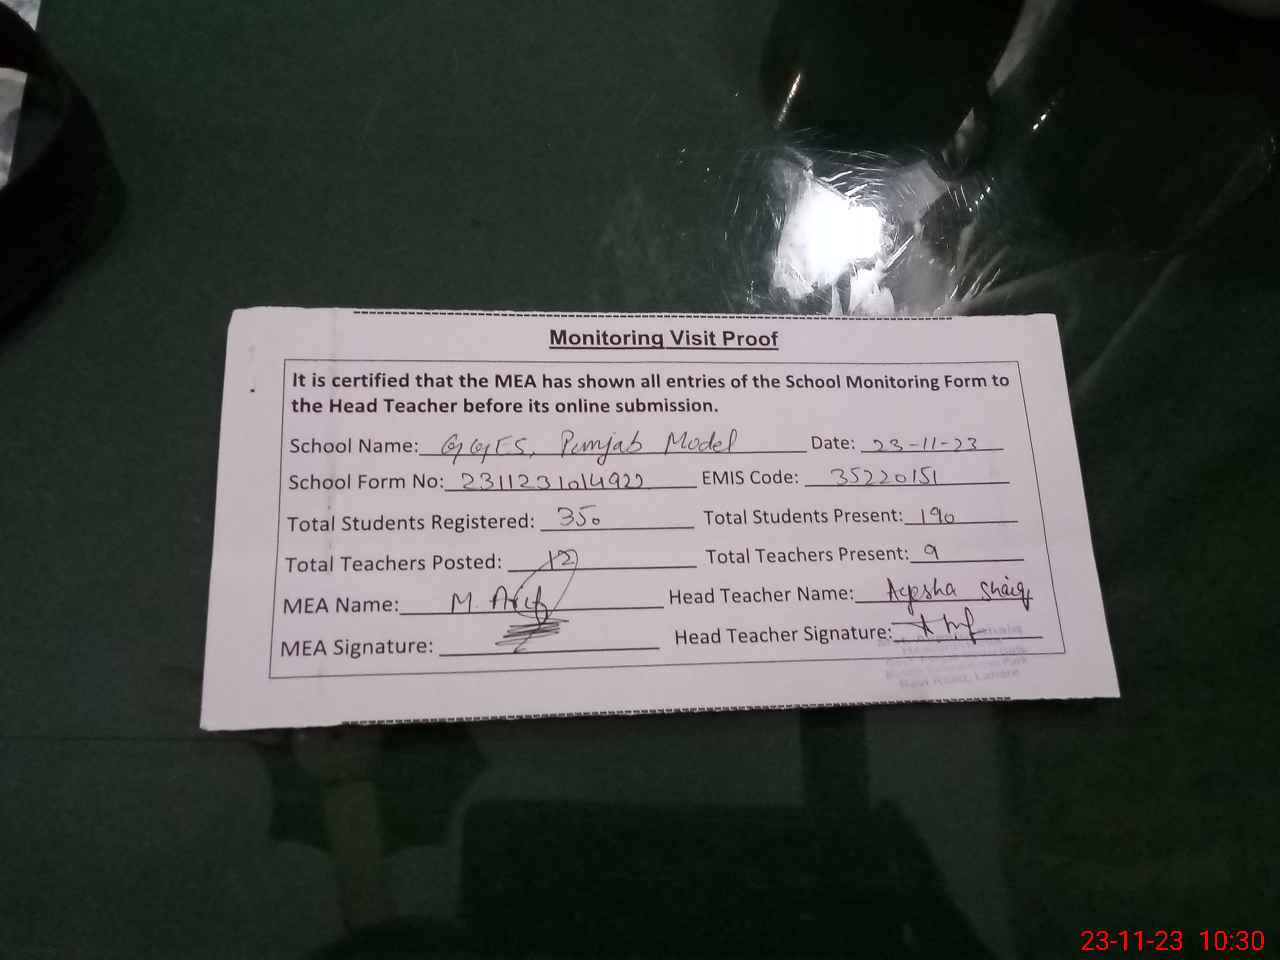 Monitoring Visit Proof
It is certified that the MEA has shown all entries of the School Monitoring Form to
the Head Teacher before its online submission.
School Name: GGES, Punjab Model Date: 23-11-23
School Form No: 2311231014922 EMIS Code: 35220151
Total Students Registered: 350 Total Students Present: 190
Total Teachers Posted: 12 Total Teachers Present: 9
MEA Name: M. Arif Head Teacher Name: Ayesha
MEA Signature: Head Teacher Signature:
Road, Lahore
23-11-23 10:30